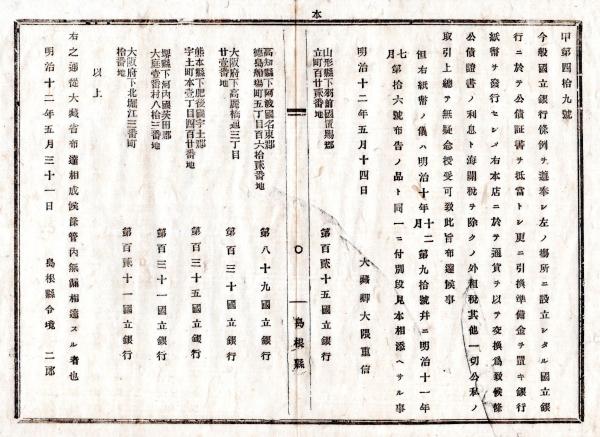 本
甲第四拾九號
今般國立銀行條例ヲ遵奉シ左ノ場所ニ設立シタル國立銀
行ニ於テ公債証書ヲ抵當トシ更ニ引換準備金ヲ置キ銀行
紙幣ヲ發行セシメ右本店ニ於テ通貨ヲ以テ交換爲致候條
公債證書ノ利息ト海關稅ヲ除クノ外租稅其他一切公私ノ
取引上總テ無疑念授受可致此旨布達候事
但右紙幣ノ儀ハ明治十年十二月第九拾號幷ニ明治十一年
七月第拾六號布告ノ品ト同一ニ付別段見本相添ヘサル事
明治十二年五月十四日
大藏卿大隈重信
山形縣下羽前國置賜郡
立町百廿貳番地
第百貳十五國立銀行
島根縣
高知縣下阿波國名東郡
德島船場町五丁目百六拾貳番地
第八十九國立銀行
大阪府下高麗橋通三丁目
廿壹番地
第百三十國立銀行
熊本縣下肥後國宇土郡
宇土町本壹丁目四百廿壹番地
第百三十五國立銀行
堺縣下河內國茨田郡
大庭壹番村八拾三番地
第百三十一國立銀行
大阪府下北堀江三番町
拾番地
第百貳十一國立銀行
以上
右之通從大藏省布達相成候條管內無漏相達スル者也
明治十二年五月三十一日
島根縣令境二郎